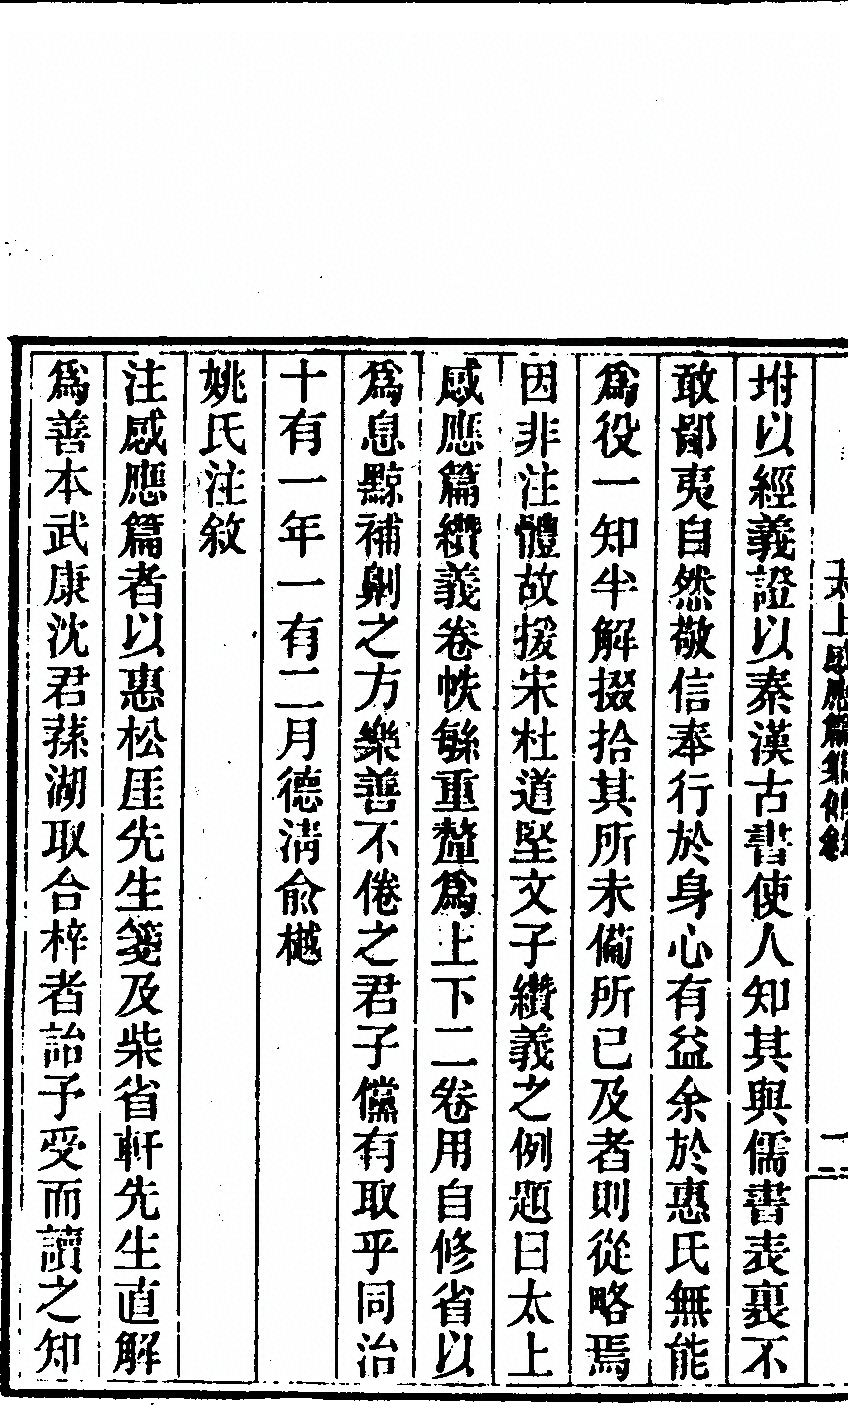 坿以經義證以秦漢古書使人知其與儒書表裏不
敢鄙夷自然敬信奉行於身心有益余於惠氏無能
爲役一知半解掇拾其所未備所已及者則從略焉
因非注體故援宋杜道堅文子纘義之例題曰太上
感應篇纘義卷帙緐重釐爲上下二卷用自修省以
爲息黥補劓之方樂善不倦之君子儻有取乎同治
十有一年一有二月德淸俞樾
姚氏注敘
注感應篇者以惠松厓先生箋及柴省軒先生直解
爲善本武康沈君蓀湖取合梓者詒予受而讀之知